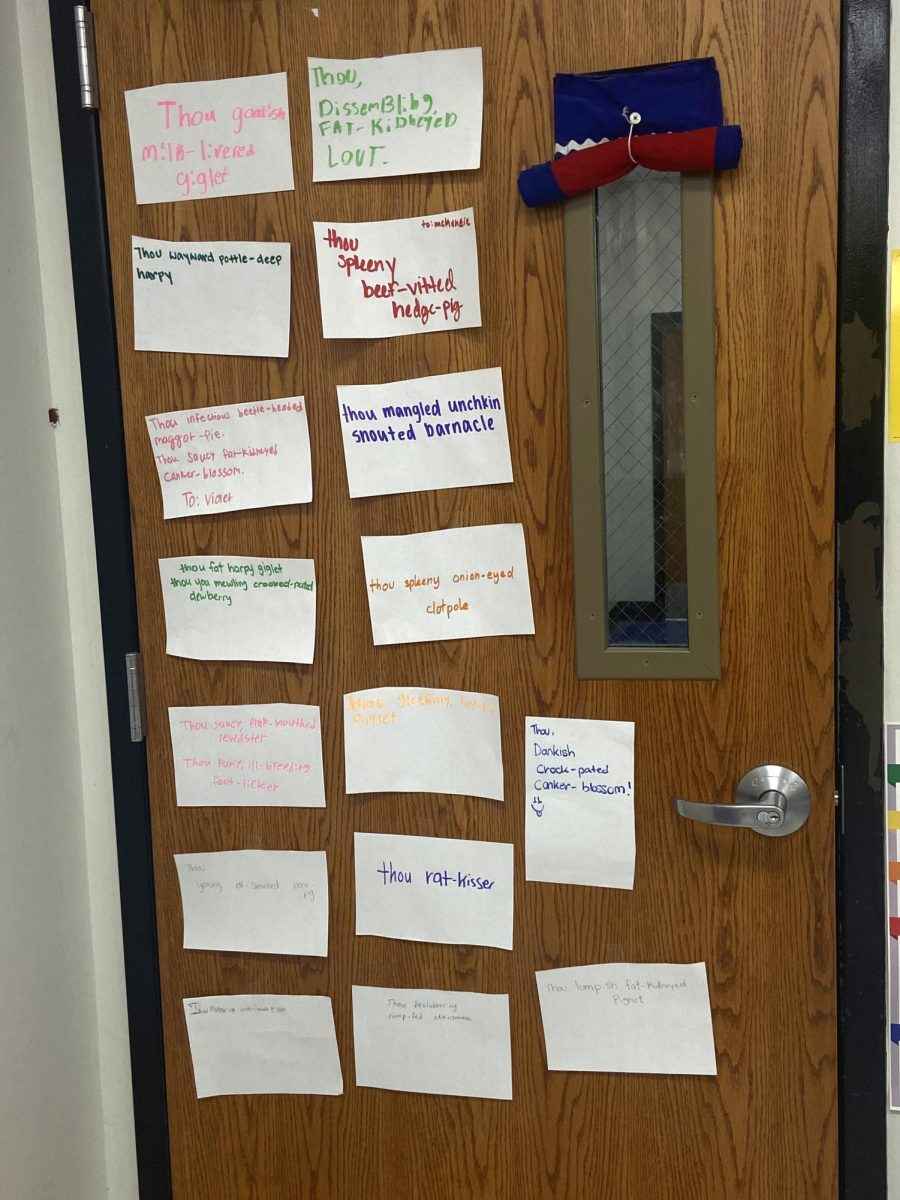 Thou goatish
milk-livered
giglet
Thou,
DissemBling,
FAT-KiDNeyeD
LOUT.
Thou wayward pottle-deep
harpy
to: mckenzie
thou
spleeny
beef-witted
hedge-pig
Thou infectious beetle-headed
maggot-pie.
Thou saucy fat-kidneyed
canker-blossom.
To: Violet
thou mangled unchkin
snouted barnacle
thou fat harpy giglet
thou you mewling crooked-pated
dewberry
thou spleeny onion-eyed
clotpole
Thou saucy, flap-mouthed
lewdster
Thou puny, ill-breeding
foot-licker
thou gleeking,
giglet
Thou,
Dankish
Crook-pated
Canker-blossom!
Thou
yeasty
boar-
pig
thou rat-kisser
Thou
Thou beslubbering
rump-fed
Thou lumpish fat-kidneyed
Pignut